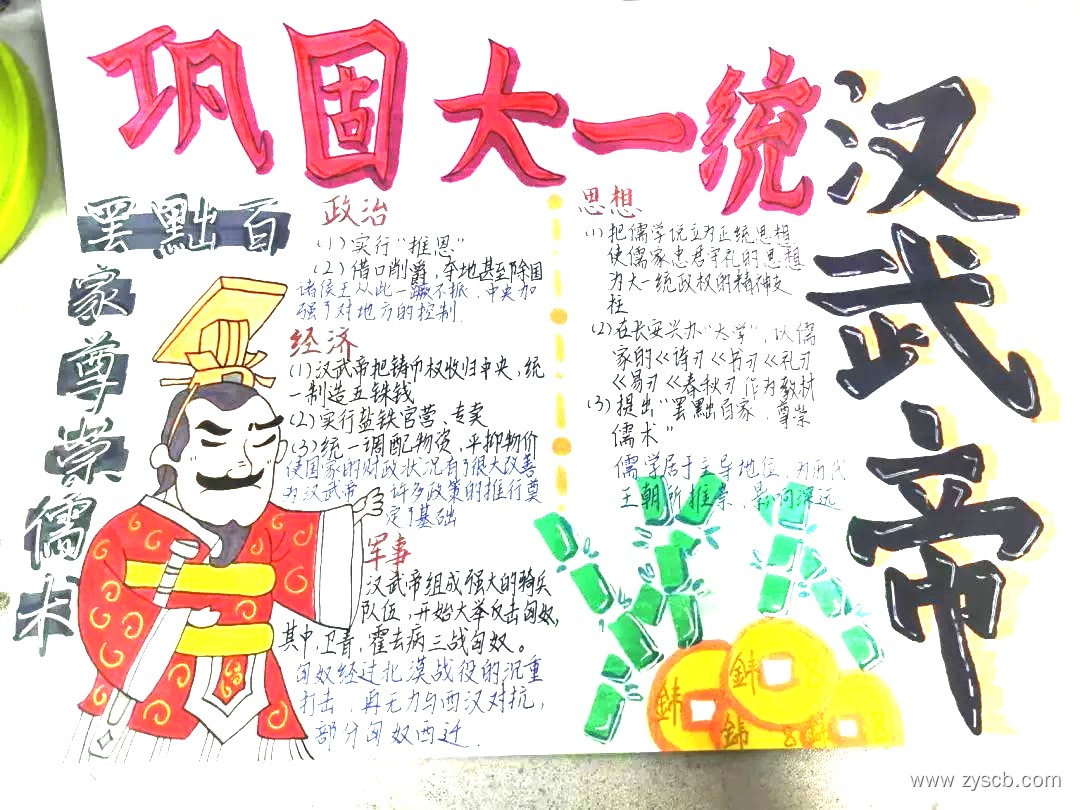 巩固大一统
汉武帝
罢黜百
家
尊
崇
儒
术
政治
(1)实行"推恩"
(2)借口削爵、夺地甚至除国
诸侯王从此一蹶不振,中央加
强了对地方的控制.
经济
(1)汉武帝把铸币权收归中央,统
一制造五铢钱
(2)实行盐铁官营、专卖
(3)统一调配物资,平抑物价
使国家的财政状况有了很大改善
为汉武帝 许多政策的推行奠
定了基础
军事
汉武帝组成强大的骑兵
队伍,开始大举反击匈奴,
其中,卫青,霍去病三战匈奴。
匈奴经过北漠战役的沉重
打击,再无力与西汉对抗,
部分匈奴西迁.
思想
(1)把儒学说立为正统思想
使儒家忠君守礼的思想
为大一统政权的精神支
柱
(2)在长安兴办"太学",以儒
家的《诗》《书》《礼》
《易》《春秋》作为教材
(3)提出"罢黜百家,尊崇
儒术"
儒学居于主导地位,为历代
王朝所推崇,影响深远
www.zyscb.com